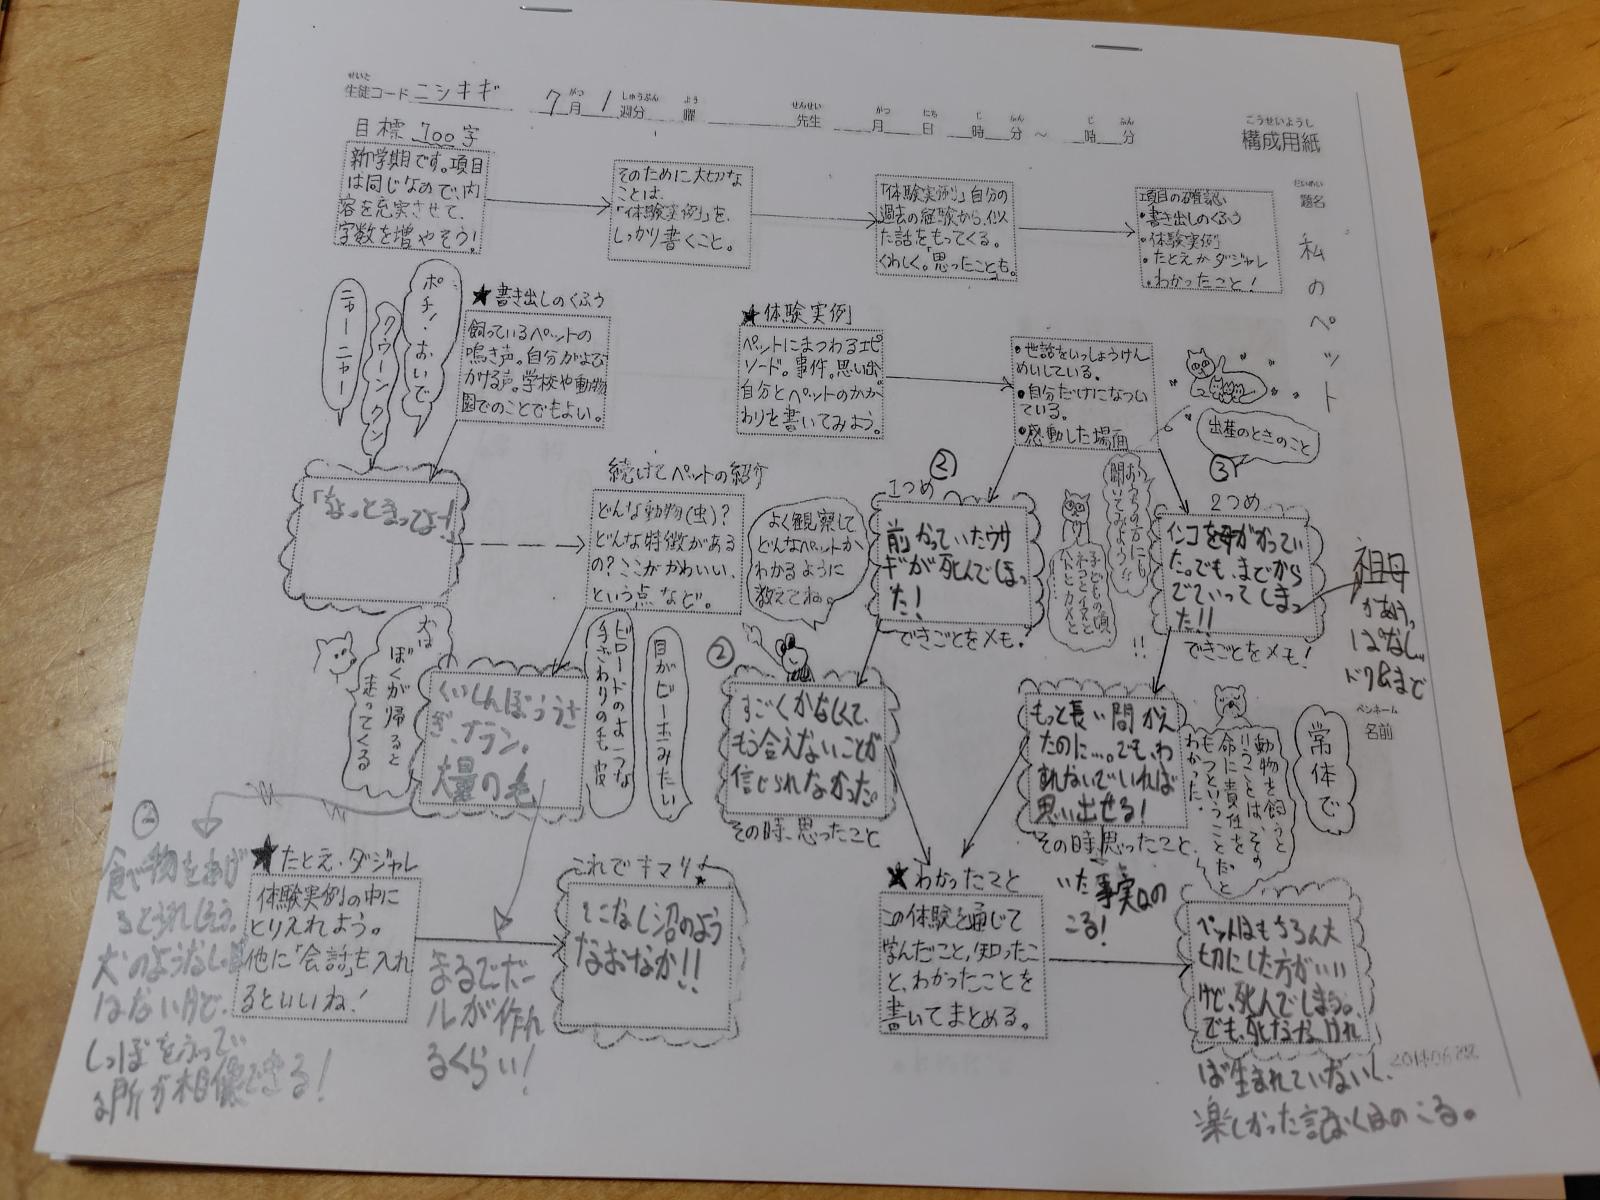 せいと
生徒コード ニシキギ 7月 1週分 曜 先生 月 日 時 分 ～ 時 分
こうせいようし
構成用紙
目標 700字
新学期です。項目
は同じなので、内
容を充実させて、
字数を増やそう!
そのために大切な
ことは、
「体験実例」を、
しっかり書くこと。
「体験実例」自分の
過去の経験から、似
た話をもってくる。
くわしく。「思ったこと」も。
項目の確認
・書き出しのくふう
・体験実例
・たとえかダジャレ
・わかったこと!
だいめい
題名
私のペット
ニャーニャー
クゥーンクン
ポチ!おいで
★書き出しのくふう
飼っているペットの
鳴き声。自分がよび
かける声。学校や動物
園でのことでもよい。
★体験実例
ペットにまつわるエピ
ソード。事件。思い出
自分とペットのかか
わりを書いてみよう。
・世話をいっしょうけん
めいしている。
・自分だけになつい
ている。
・感動した場面
出産のときのこと
「ちょっとまってよー!
続けてペットの紹介
どんな動物(虫)?
どんな特徴がある
の?ここがかわいい、
という点など。
よく観察して
どんなペットか
わかるように
教えてね。
②
1つめ
前かっていたウサ
ギが死んでしまっ
た!
できごとをメモ!
おうちの方にも
聞いてみよう!!
子どもの頃、
ネコとイヌと
ハトとカメと
……!!
③
2つめ
インコを母がかってい
た。でも、まどから
でていってしまっ
た!!
できごとをメモ!
祖母
があう。
はなし。
犬は
ぼくが帰ると
走ってくる
くいしんぼううさ
ぎ、ナラン。
大量の毛
ビロードのような
手ざわりの毛皮
目がビー玉みたい
②
すごくかなしくて、
もう会えないことが
信じられなかった。
その時、思ったこと
もっと長い間かえ
たのに…。でも、わ
すれないでいれば
思い出せる!
その時、思ったこと
いた事実はの
こる!
動物を飼うと
いうことは、その
命に責任を
もつということだと
わかった。
常体で
ペンネーム
名前
食べ物をあげ
るとうれしそう。
犬のようなしっぽ
はないけど、
しっぽをふってい
る所が想像できる!
★たとえ・ダジャレ
体験実例の中に
とりいれよう。
他に「会話」も入れ
るといいね!
まるでボー
ルが作れ
るくらい!
これでキマリ★
そこなし沼のよう
なおなか!!
★わかったこと
この体験を通じて
学んだこと、知ったこ
と、わかったことを
書いてまとめる。
ペットはもちろん大
切にした方がいい
けど、死んでしまう。
でも、死ななければ
ば生まれていないし、
楽しかった記おくはのこる。